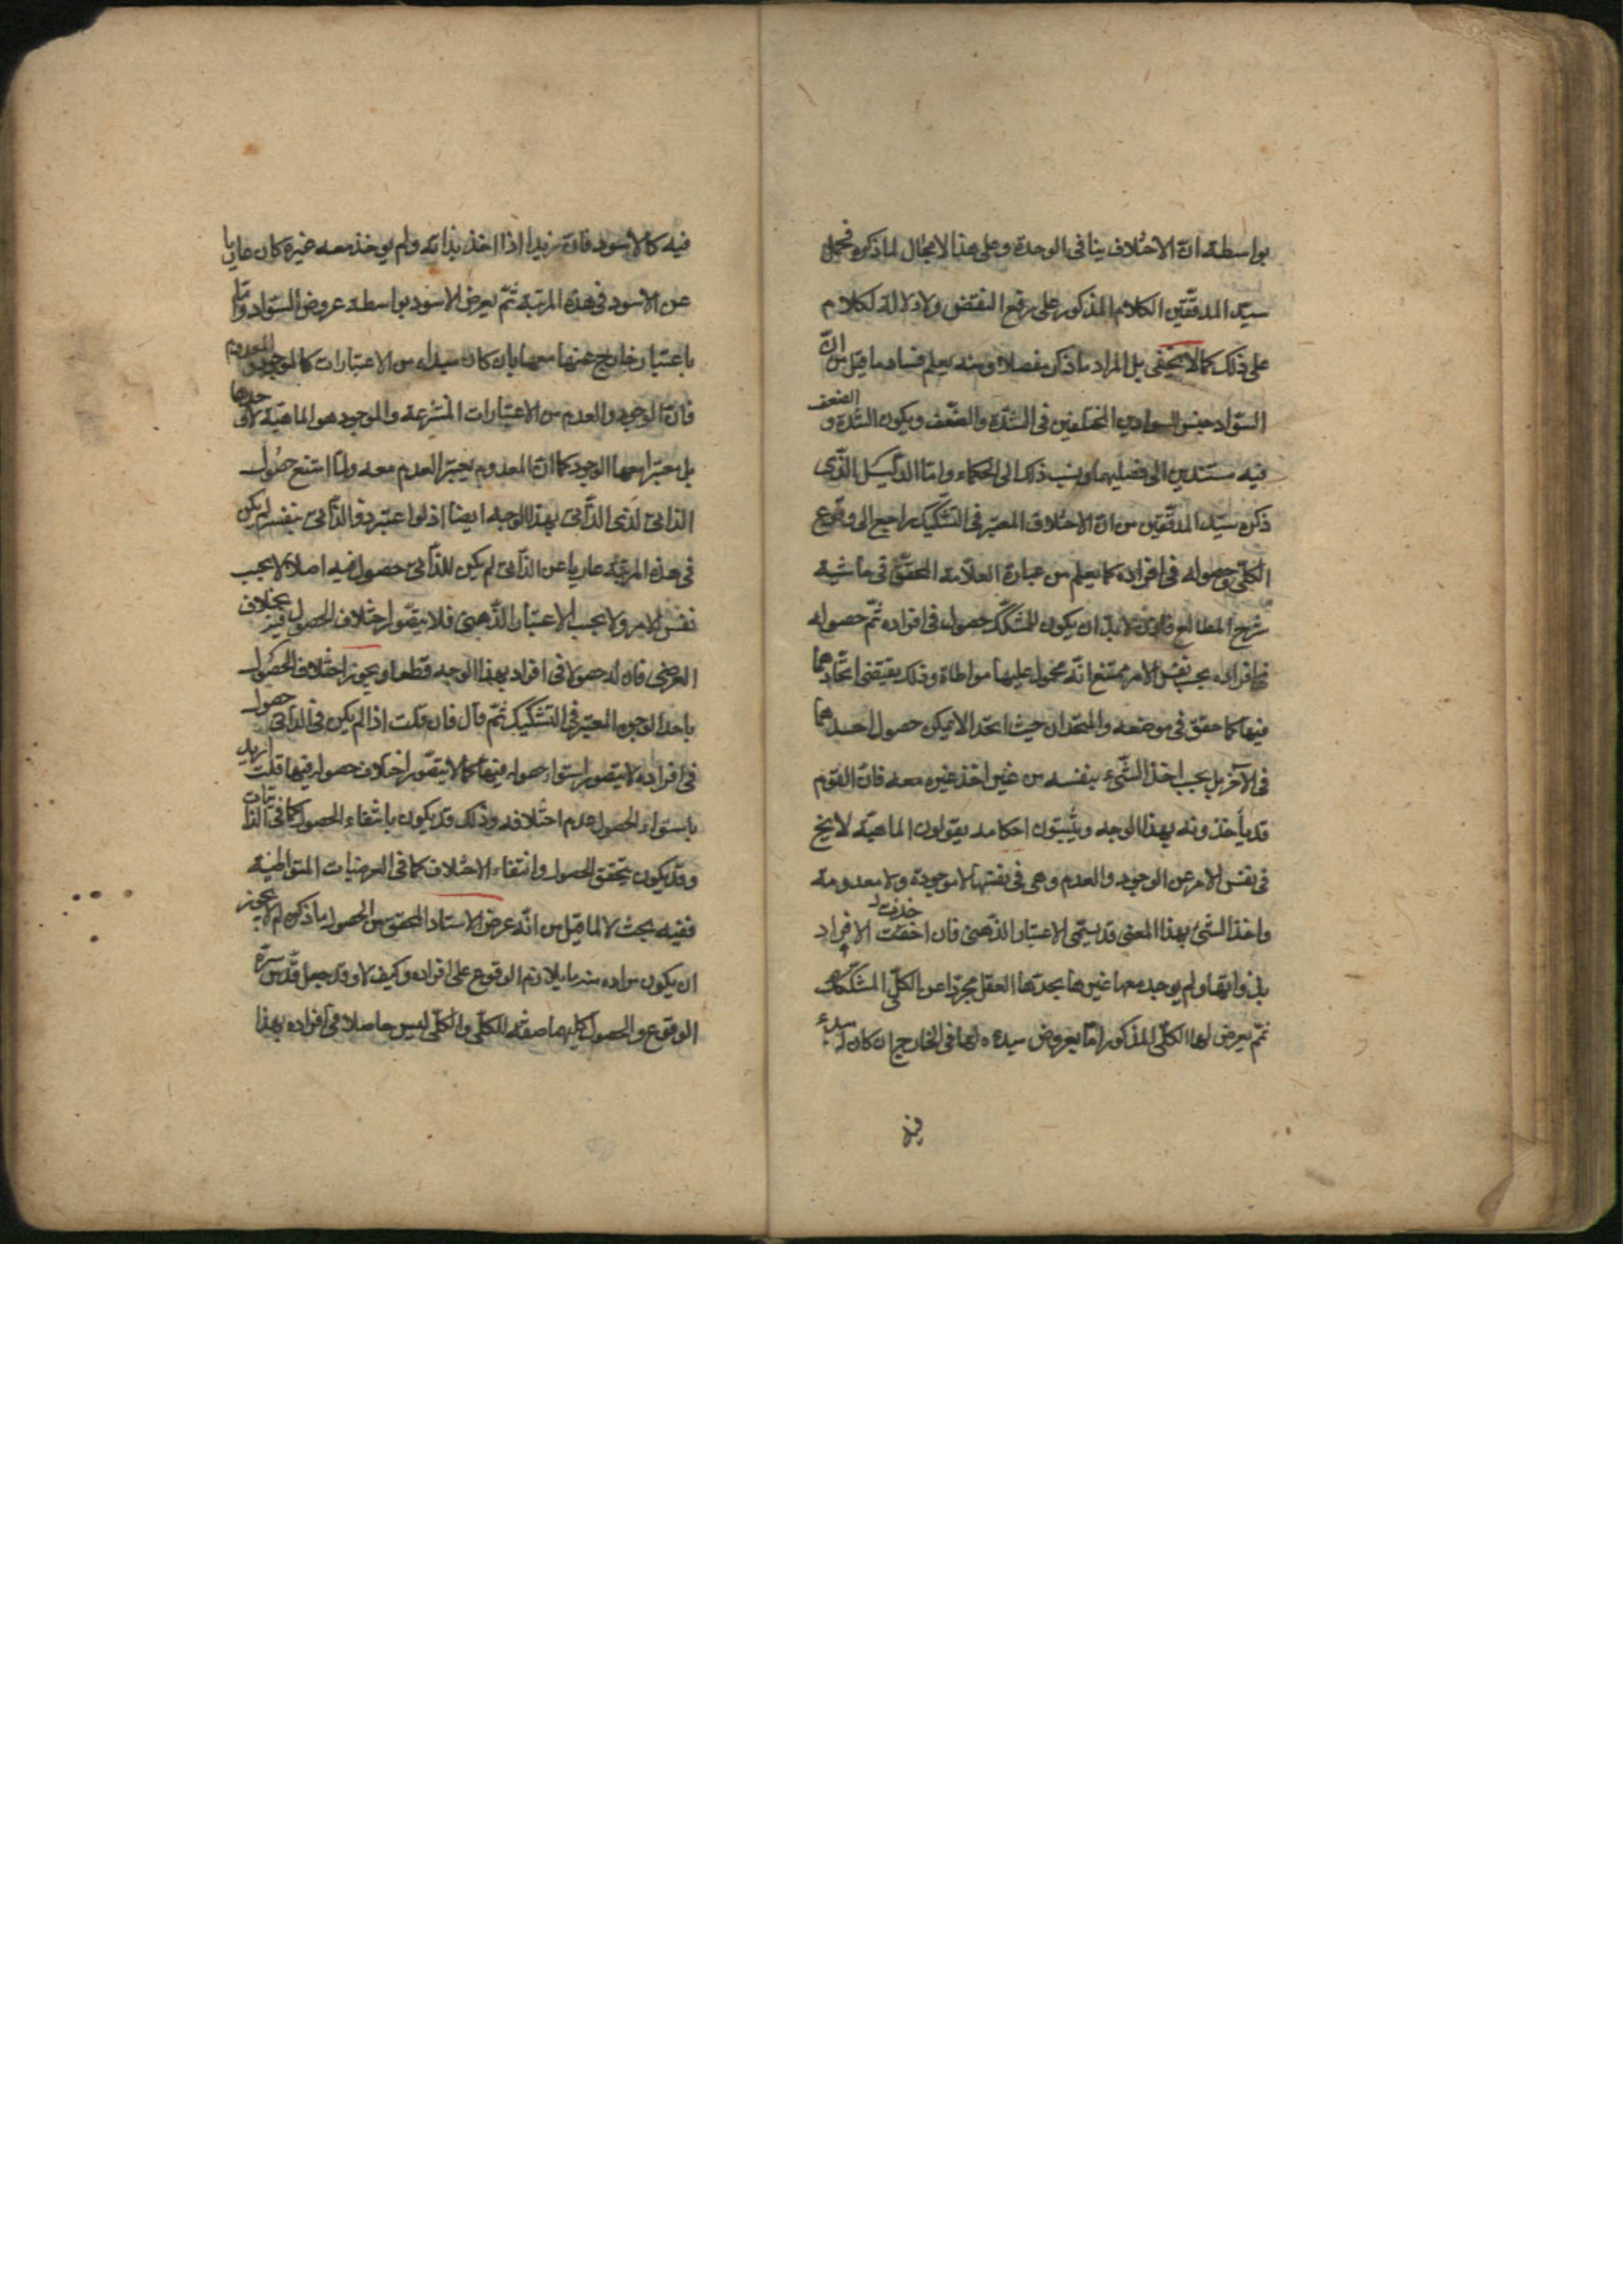 بواسطة ان الاختلاف ينافى الوحدة وعلى هذا الاجمال لما ذكره فحمل
سيّد المدقّقين الكلام المذكور على رفع النقض ولا دلالة لكلام
على ذلك كما لا يخفى بل المراد ما ذكر مفصلا ومنه يعلم فساد ما قيل من انّ
السّواد جنس السوادين المختلفين فى الشّدّة والضّعف ويكون الشدّة و الضعف
فيه مستندين الى فصليهما ونسب ذلك الى الحكماء وامّا الدّليل الّذى
ذكره سيّد المدقّقين من انّ الاختلاف المعتبر فى التشكيك راجع الى وقوع
الكلّى وحصوله فى افراده كما يعلم من عبارة العلّامة المحقّق فى حاشية
شرح المطالع فلا بدّ ان يكون للمشكّك حصول فى افراده ثمّ حصوله
فى افراده بحسب نفس الامر ممتنع انّه محمول عليها مواطاة وذلك يقتضى اتّحادهما
فيها كما حقق فى موضعه والمتّحدان حيث اتحدا لا يمكن حصول احدهما
فى الآخر بل بحسب اخذ الشّىء بنفسه من غير اخذ غيره معه فانّ القوم
قد يأخذونه بهذا الوجه ويثبتون احكامه يقولون الماهيّة لا يخ
فى نفس الامر عن الوجود والعدم وهى فى نفسها لا موجودة ولا معدومة
واخذ الشّئ بهذا المعنى قد يسمّى الاعتبار الذّهنى فان اخذت الافراد
بذواتها ولم يوجد معها غيرها يجدها العقل مجرّدا عن الكلّى المشكّك
ثمّ يعرض لها الكلّى المذكور امّا بعروض مبدءه لها فى الخارج ان كان له مبدء
فيه
فيه كالاسود فانّ زيدا اذا اخذ بذاته ولم يوخذ معه غيره كان عاريا
عن الاسود فى هذه المرتبة ثمّ يعرض الاسود بواسطة عروض السّواد وامّا
باعتبار خارج عنها معها بان كان مبداء من الاعتبارات كالموجود والمعدوم
فانّ الوجود والعدم من الاعتبارات المنتزعة والموجود هو الماهيّة لا وحدها
بل معتبرا معها الوجود كما انّ المعدوم يعتبر العدم معه ولمّا امتنع حصول
الذاتى لذى الذّاتى بهذا الوجه ايضا اذ لو اعتبر ذو الذّاتى بنفسه لم يكن
فى هذه المرتبة عاريا عن الذّاتى لم يكن للذّاتى حصول فيه اصلا لا بحسب
نفس الامر ولا بحسب الاعتبار الذّهنى فلا يتصّور اختلاف الحصول فيه بخلاف
العرضى فان له حصولا فى افراده بهذا الوجه قطعا ويجوز اختلاف الحصول
باحد الوجوه المعتبر فى التشكيك ثمّ قال فان قلت اذا لم يكن فى الذّاتى حصول
فى افراده لا يتصور استواء حصوله فيها كما لا يتصّور اختلاف حصوله فيها قلت اريد
باستواء الحصول عدم اختلافه وذلك قد يكون بانتفاء الحصول كما فى الذاتيات
وقد يكون بتحقق الحصول وانتفاء الاختلاف كما فى العرضيات المتواطئة
ففيه بحث لا لما قيل من انّه غرض الاستاد المحقق من الحصول ما ذكره لم لا يجوز
ان يكون مراده منه ما يلازم الوقوع على افراده وكيف لا وقد جعل قدّس سرّه
الوقوع والحصول كليهما صفة للكلّى والكلّى ليس حاصلا فى افراده بهذا